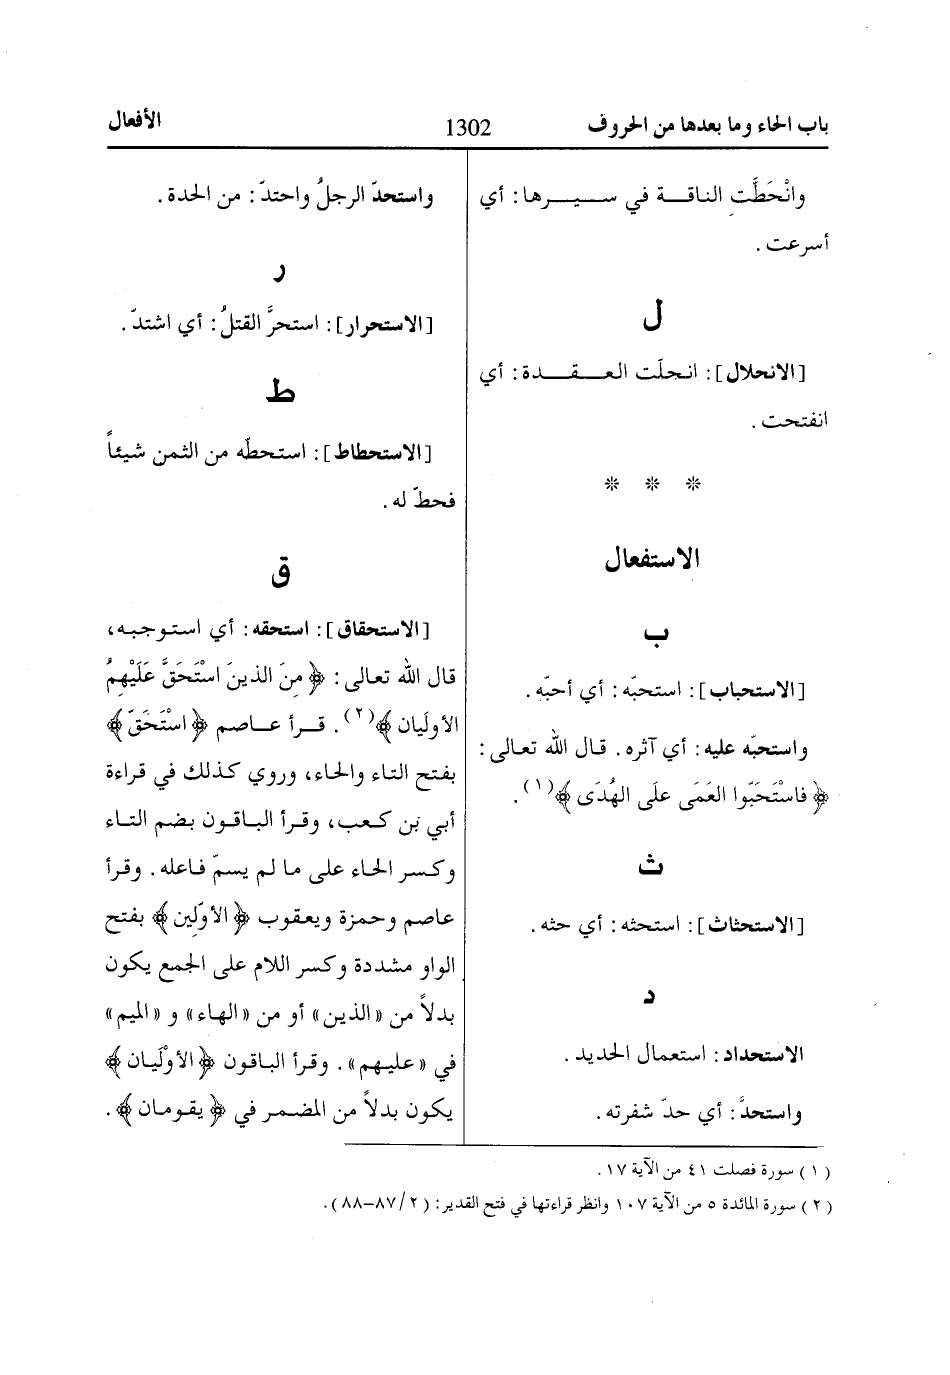 باب الحاء وما بعدها من الحروف
1302
الأفعال
وانْحَطَّتِ الناقة في سيرها: أي
أسرعت.
ل
[الانحلال]: انحلّت العقدة: أي
انفتحت.
* * *
الاستفعال
ب
[الاستحباب]: استحبّه: أي أحبّه.
واستحبّه عليه: أي آثره. قال الله تعالى:
﴿فاسْتَحَبّوا العَمَى علَى الهُدَى﴾(١).
ث
[الاستحثاث]: استحثه: أي حثه.
د
الاستحداد: استعمال الحديد.
واستحدَّ: أي حدّ شفرته.
واستحدّ الرجلُ واحتدّ: من الحدة.
ر
[الاستحرار]: استحرَّ القتلُ: أي اشتدّ.
ط
[الاستحطاط]: استحطّه من الثمن شيئاً
فحطّ له.
ق
[الاستحقاق]: استحقه: أي استوجبه،
قال الله تعالى: ﴿مِنَ الذينَ اسْتَحَقَّ عَلَيْهِمُ
الأولَيان﴾(٢). قرأ عاصم ﴿اسْتَحَقّ﴾
بفتح التاء والحاء، وروي كذلك في قراءة
أبي بن كعب، وقرأ الباقون بضم التاء
وكسر الحاء على ما لم يسمّ فاعله. وقرأ
عاصم وحمزة ويعقوب ﴿الأوّلين﴾ بفتح
الواو مشددة وكسر اللام على الجمع يكون
بدلاً من «الذين» أو من «الهاء» و «الميم»
في «عليهم». وقرأ الباقون ﴿الأوْلَيان﴾
يكون بدلاً من المضمر في ﴿يقومان﴾.
(١) سورة فصلت ٤١ من الآية ١٧.
(٢) سورة المائدة ٥ من الآية ١٠٧ وانظر قراءتها في فتح القدير: (٢/٨٧-٨٨).